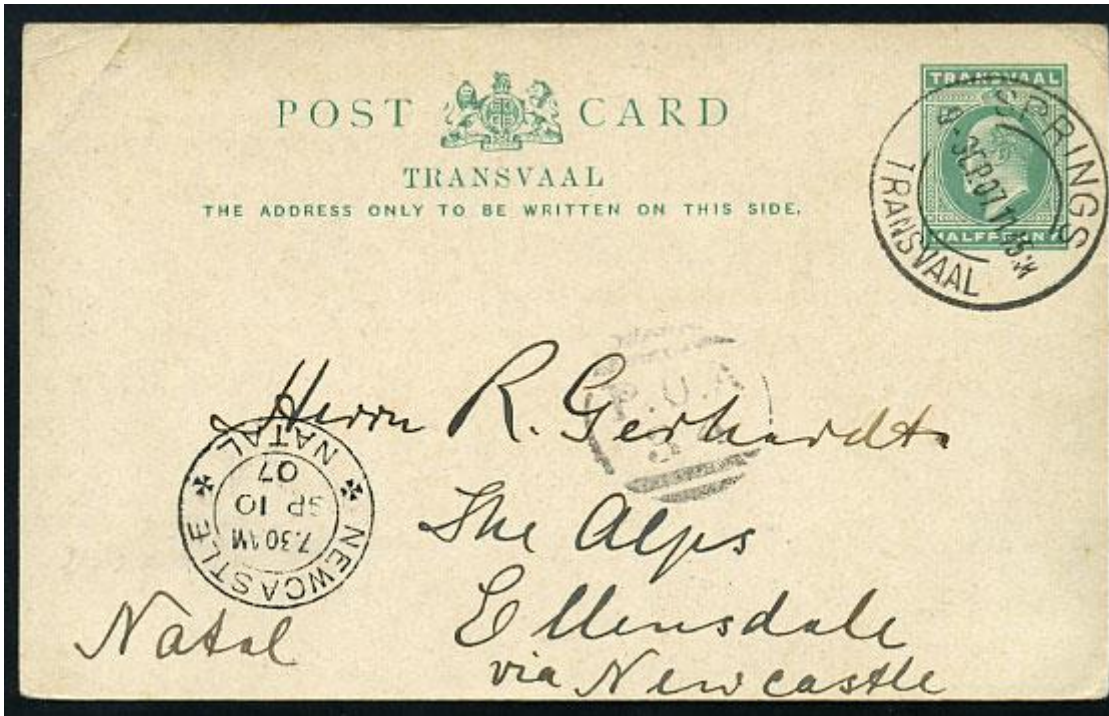 POST CARD
TRANSVAAL
THE ADDRESS ONLY TO BE WRITTEN ON THIS SIDE.
TRANSVAAL
HALFPENNY
SPRINGS
SEP.07.11
TRANSVAAL
P.O.A
Herrn R. Gerhardt
The Alps
Ellensdale
via Newcastle
Natal
NEWCASTLE NATAL
7.30 AM
SP 10
07